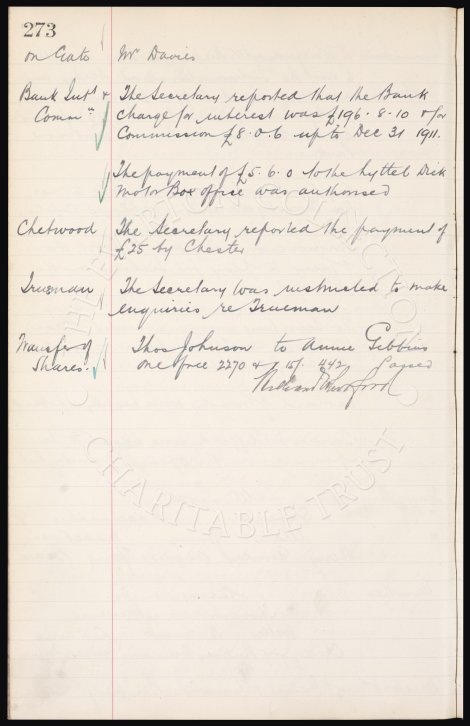 273
on Gate Mr Davies
Bank Intst & The Secretary reported that the Bank
Commn Charge for interest was £196.8.10 & for
Commission £8.0.6 up to Dec 31 1911.
The payment of £5.6.0 to the Lyttel Disk
Motor Box office was authorised
Chetwood The Secretary reported the payment of
£25 by Chester
Trueman The Secretary was instructed to make
enquiries re Trueman
Transfer of Thos Johnson to Annie Gibbins
Shares. One free 2270 & 15/. 442 Passed
THE EVERTON COLLECTION
CHARITABLE TRUST